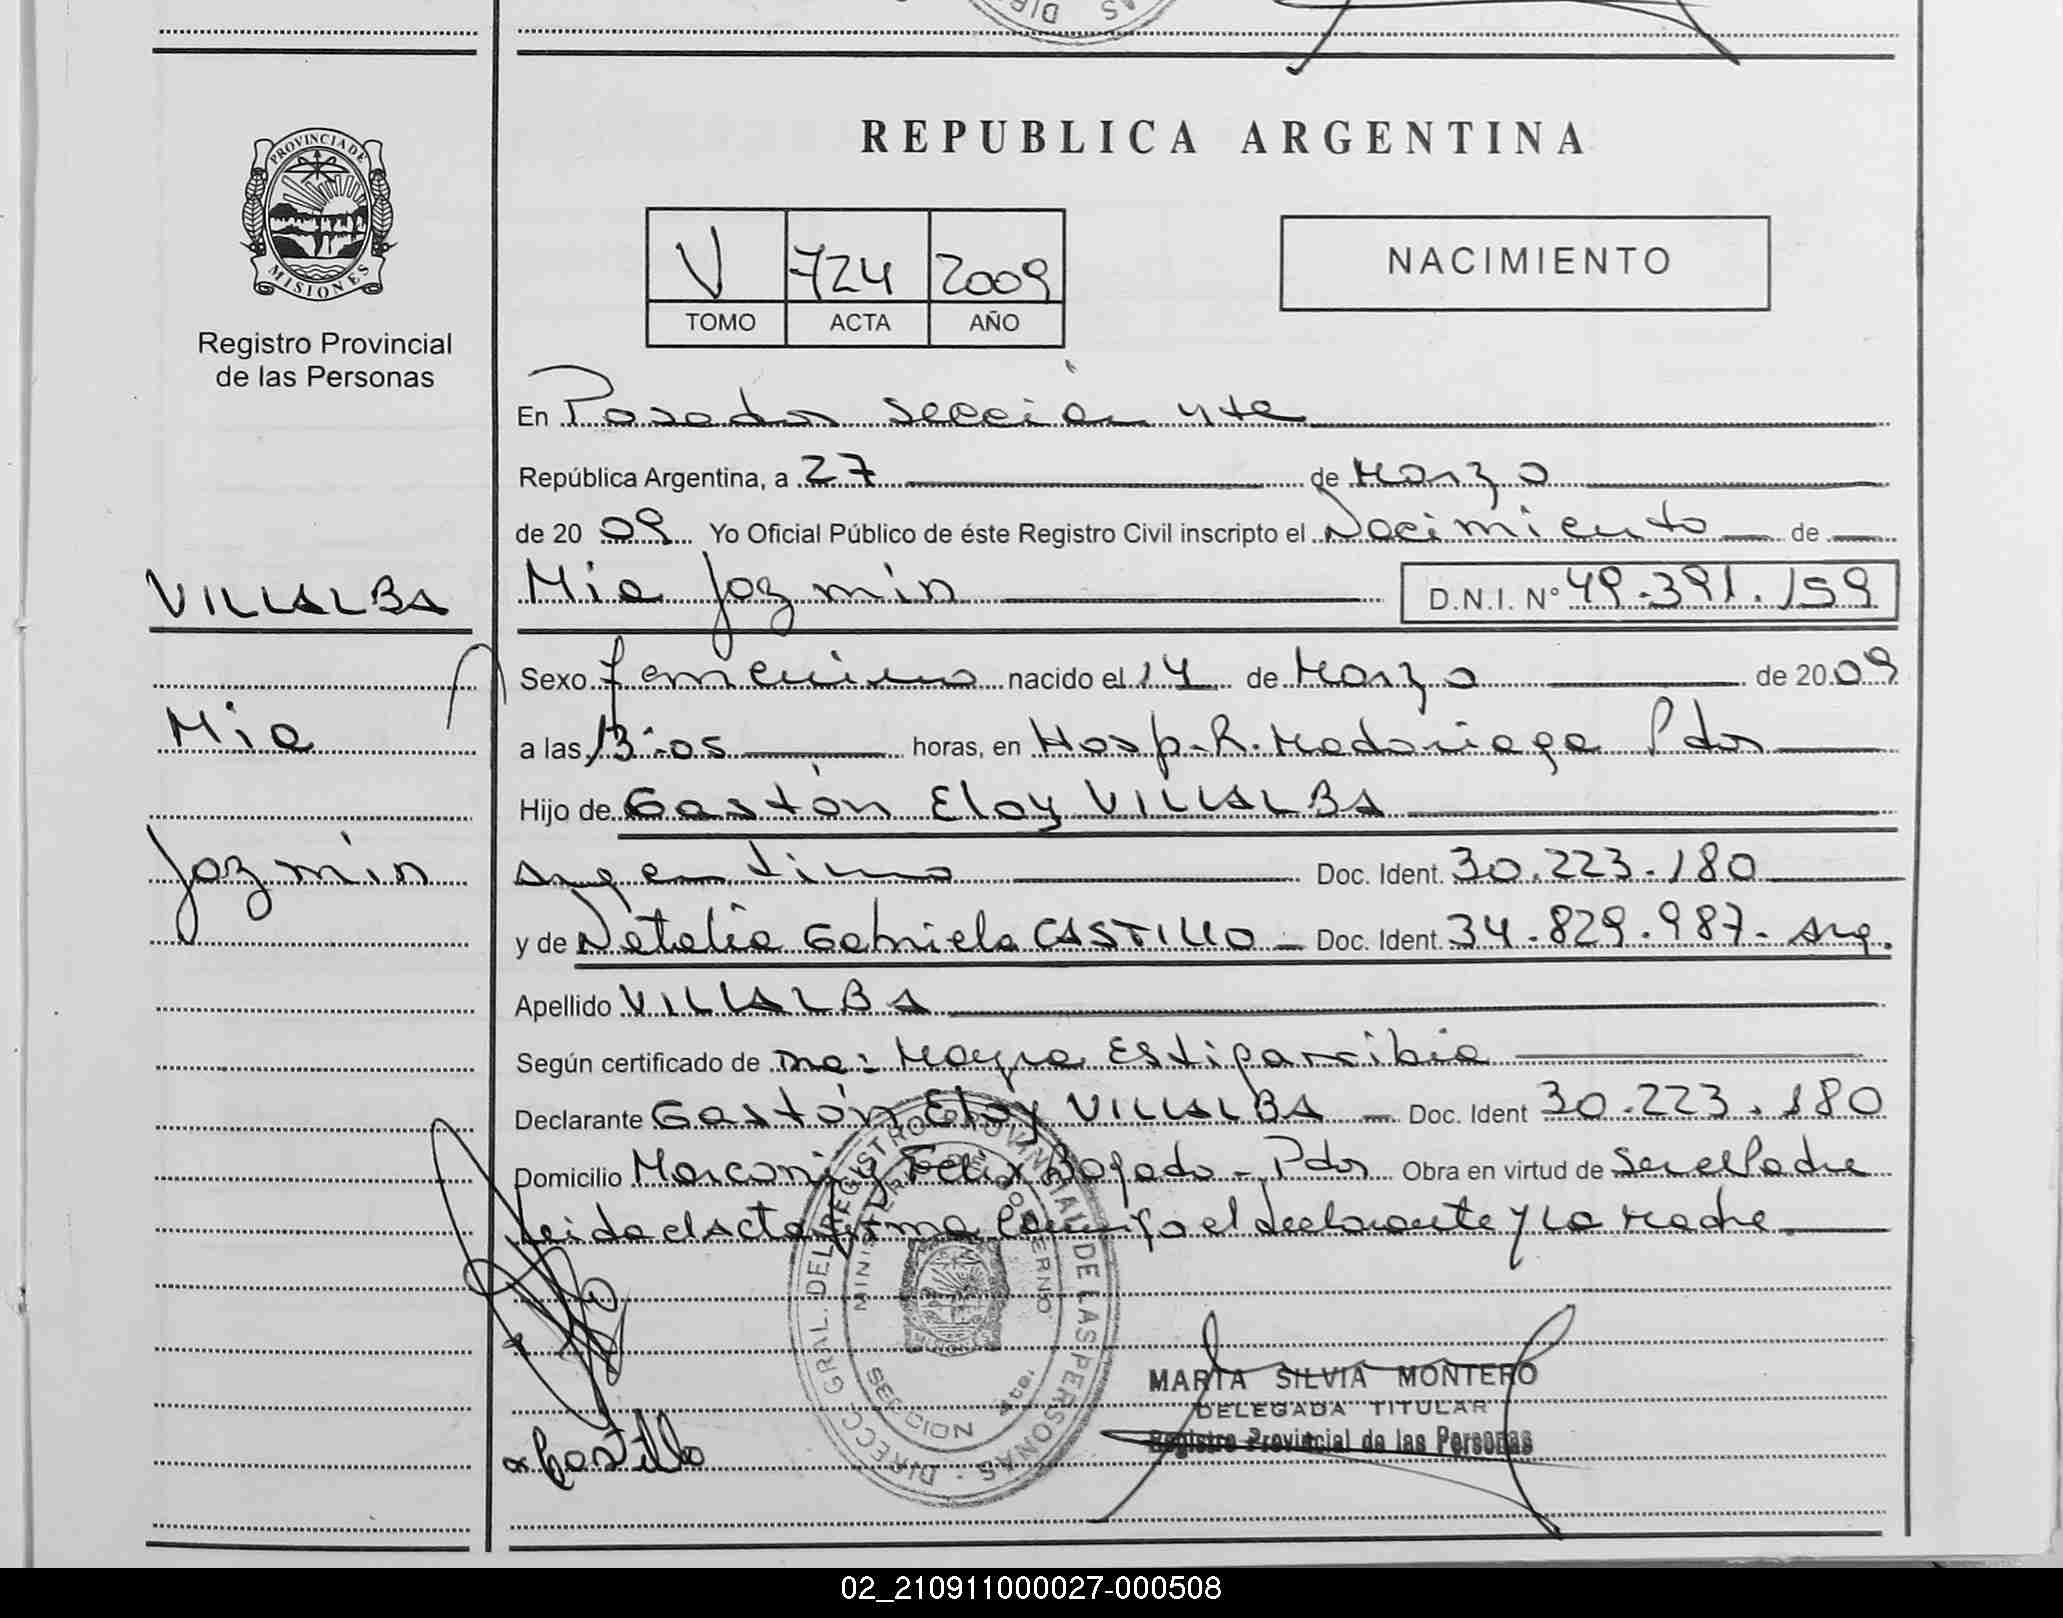 REPUBLICA ARGENTINA
PROVINCIA DE
MISIONES
Registro Provincial
de las Personas
V 724 2009
TOMO ACTA AÑO
NACIMIENTO
En Posadas sección 4ta
República Argentina, a 27 de Marzo
de 20 09 Yo Oficial Público de éste Registro Civil inscripto el Nacimiento de
VILLALBA
Mia Jazmín D.N.I. N° 49.391.159
Sexo femenino nacido el 14 de Marzo de 20 09
Mia
a las 13:05 horas, en Hosp. R. Madariaga Pdas
Hijo de Gastón Eloy VILLALBA
Jazmín
argentino Doc. Ident. 30.223.180
y de Natalia Gabriela CASTILLO Doc. Ident. 34.829.987- Arg.
Apellido VILLALBA
Según certificado de Mayra
Declarante Gastón Eloy VILLALBA Doc. Ident 30.223.180
Domicilio Marconi y Felix Bogado - Pdas Obra en virtud de Ser el Padre
Leida el Acta firma conmigo el declarante y la Madre.
DIRECC. GRAL. DEL REGISTRO PROVINCIAL DE LAS PERSONAS
MINISTERIO DE GOBIERNO
SECCION 4ta.
MARTA SILVIA MONTERO
DELEGADA TITULAR
Registro Provincial de las Personas
Castillo
02_210911000027-000508